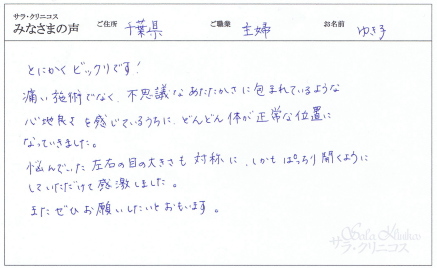 サラ・クリニコス
みなさまの声 ご住所 千葉県 ご職業 主婦 お名前 ゆき子
とにかくビックリです!
痛い施術でなく、不思議なあたたかさに包まれているような
心地良さを感じているうちに、どんどん体が正常な位置に
なっていきました。
悩んでいた左右の目の大きさも対称に、しかもぱっちり開くように
していただけて感激しました。
またぜひお願いしたいとおもいます。
Sala Klinikos
サラ・クリニコス